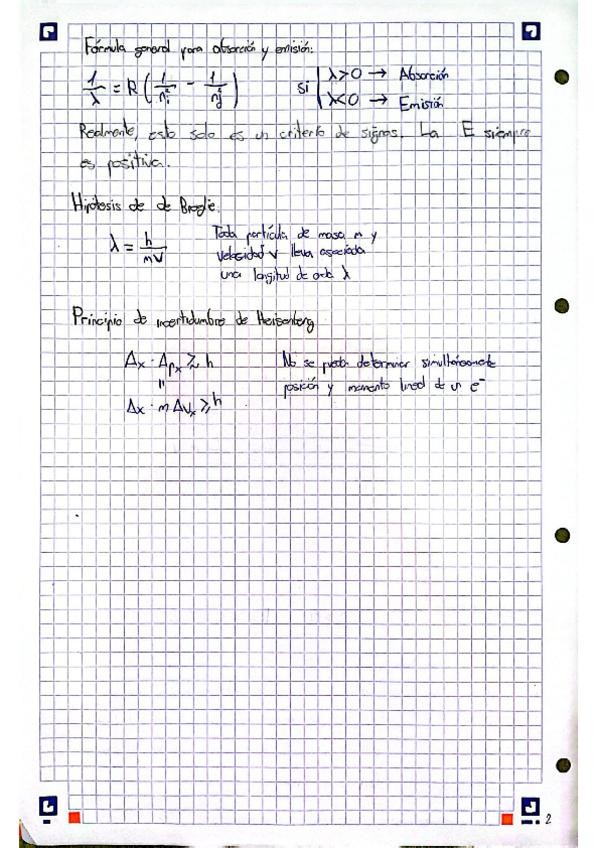 Fórmula general para absorción y emisión:
1/λ = R (1/n²ᵢ - 1/n²f) si | λ>0 → Absorción
| λ<0 → Emisión
Realmente, esto solo es un criterio de signos. La E siempre
es positiva.
Hipótesis de de Broglie.
λ = h/mv Toda partícula de masa m y
velocidad v lleva asociada
una longitud de onda λ
Principio de incertidumbre de Heisenberg
Δx · Δpₓ ≳ h No se puede determinar simultáneamente
" posición y momento lineal de un e⁻
Δx · m Δvₓ ≥ h
2